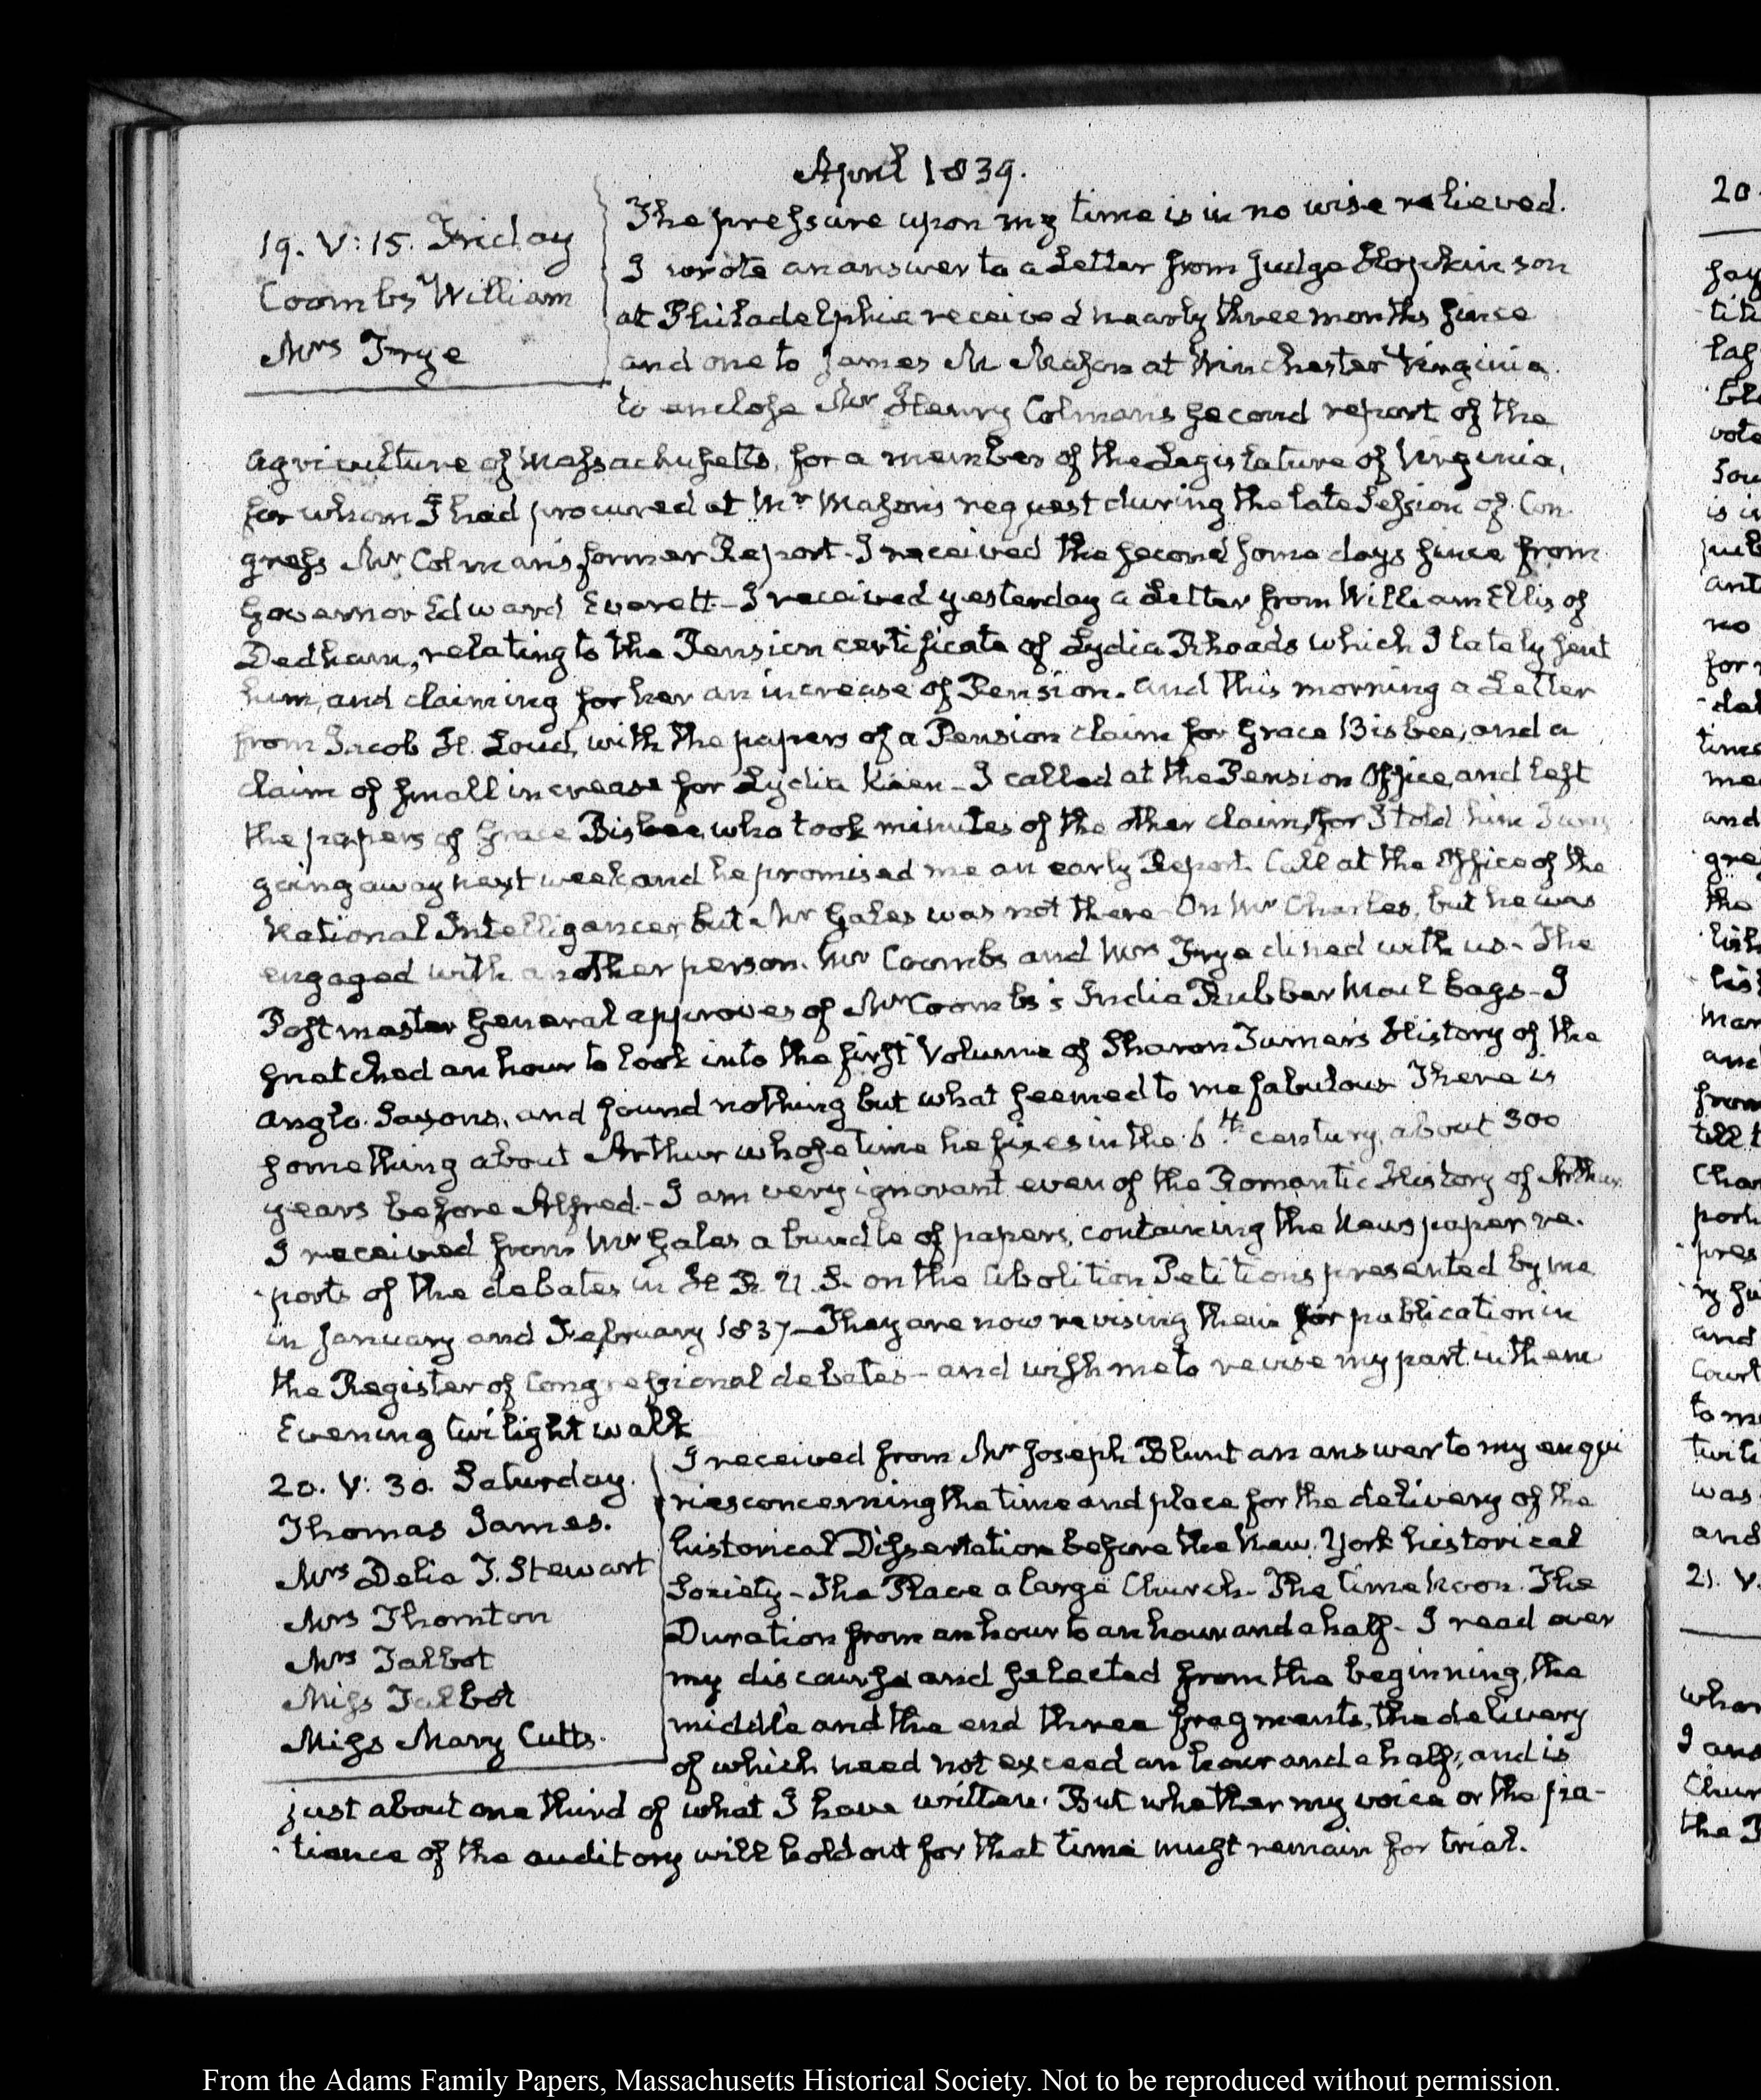 April 1839.
19. V: 15. Friday
Coombs William
Mrs Frye
The pressure upon my time is in no wise relieved.
I wrote an answer to a Letter from Judge Hopkinson
at Philadelphia received nearly three months since
and one to James M Mason at Winchester Virginia.
to enclose Mr Henry Colmans second report of the
Agriculture of Massachusetts, for a member of the Legislature of Virginia,
for whom I had procured at Mr Mason's request during the late Session of Con
gress Mr Colman's former Report. I received the second some days since from
Governor Edward Everett - I received yesterday a Letter from William Ellis of
Dedham, relating to the Pension certificate of Lydia Rhoads which I lately sent
him, and claiming for her an increase of Pension. And this morning a Letter
from Jacob H. Loud, with the papers of a Pension claim for Grace Bisbee, and a
claim of small increase for Lydia Keen - I called at the Pension Office, and left
the papers of Grace Bisbee, who took minutes of the other claim, for I told him I was
going away next week and he promised me an early Report. Call at the Office of the
National Intelligencer but Mr Gales was not there - On Mr Charles, but he was
engaged with another person. Mr Coombs and Mrs Frye dined with us - The
Postmaster General approves of Mr Coombs's India Rubber Mail bags - I
snatched an hour to look into the first Volume of Sharon Turner's History of the
Anglo-Saxons, and found nothing but what seemed to me fabulous There is
something about Arthur whose time he fixes in the 6.th century, about 300
years before Alfred. - I am very ignorant even of the Romantic History of Arthur.
I received from Mr Gales a bundle of papers, containing the Newspaper re-
ports of the debates in H. R. U. S. on the Abolition Petitions presented by me
in January and February 1837 - They are now revising them for publication in
the Register of Congressional debates - and wish me to revise my part in them
Evening twilight walk
20. V: 30. Saturday.
Thomas James.
Mrs Delia T. Stewart
Mrs Thornton
Mrs Talbot
Miss Talbot
Miss Mary Cutts.
I received from Mr Joseph Blunt an answer to my enqui
ries concerning the time and place for the delivery of the
historical Dissertation before the New-York historical
Society - The Place a large Church - The time Noon. The
Duration from an hour to an hour and a half - I read over
my discourse and selected from the beginning, the
middle and the end three fragments, the delivery
of which need not exceed an hour and a half, and is
just about one third of what I have written. But whether my voice or the pa-
tience of the auditory will hold out for that time must remain for trial.
From the Adams Family Papers, Massachusetts Historical Society. Not to be reproduced without permission.